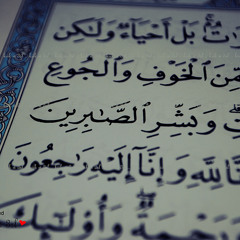 بَلْ أَحْيَآءٌ وَلَٰكِن
مِّنَ ٱلْخَوْفِ وَٱلْجُوعِ
وَبَشِّرِ ٱلصَّٰبِرِينَ
لِلَّهِ وَإِنَّآ إِلَيْهِ رَٰجِعُونَ
وَرَحْمَةٌ وَأُو۟لَٰٓئِكَ